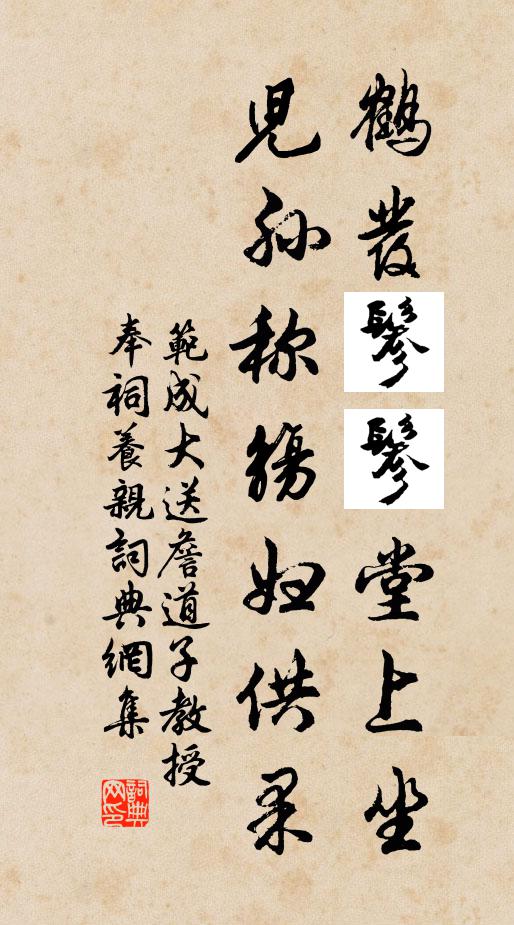 鶴發鬖鬖堂上坐
児孙称觴妇供果
範成大送詹道子教授
奉祠養親詞典網集
詞典网印